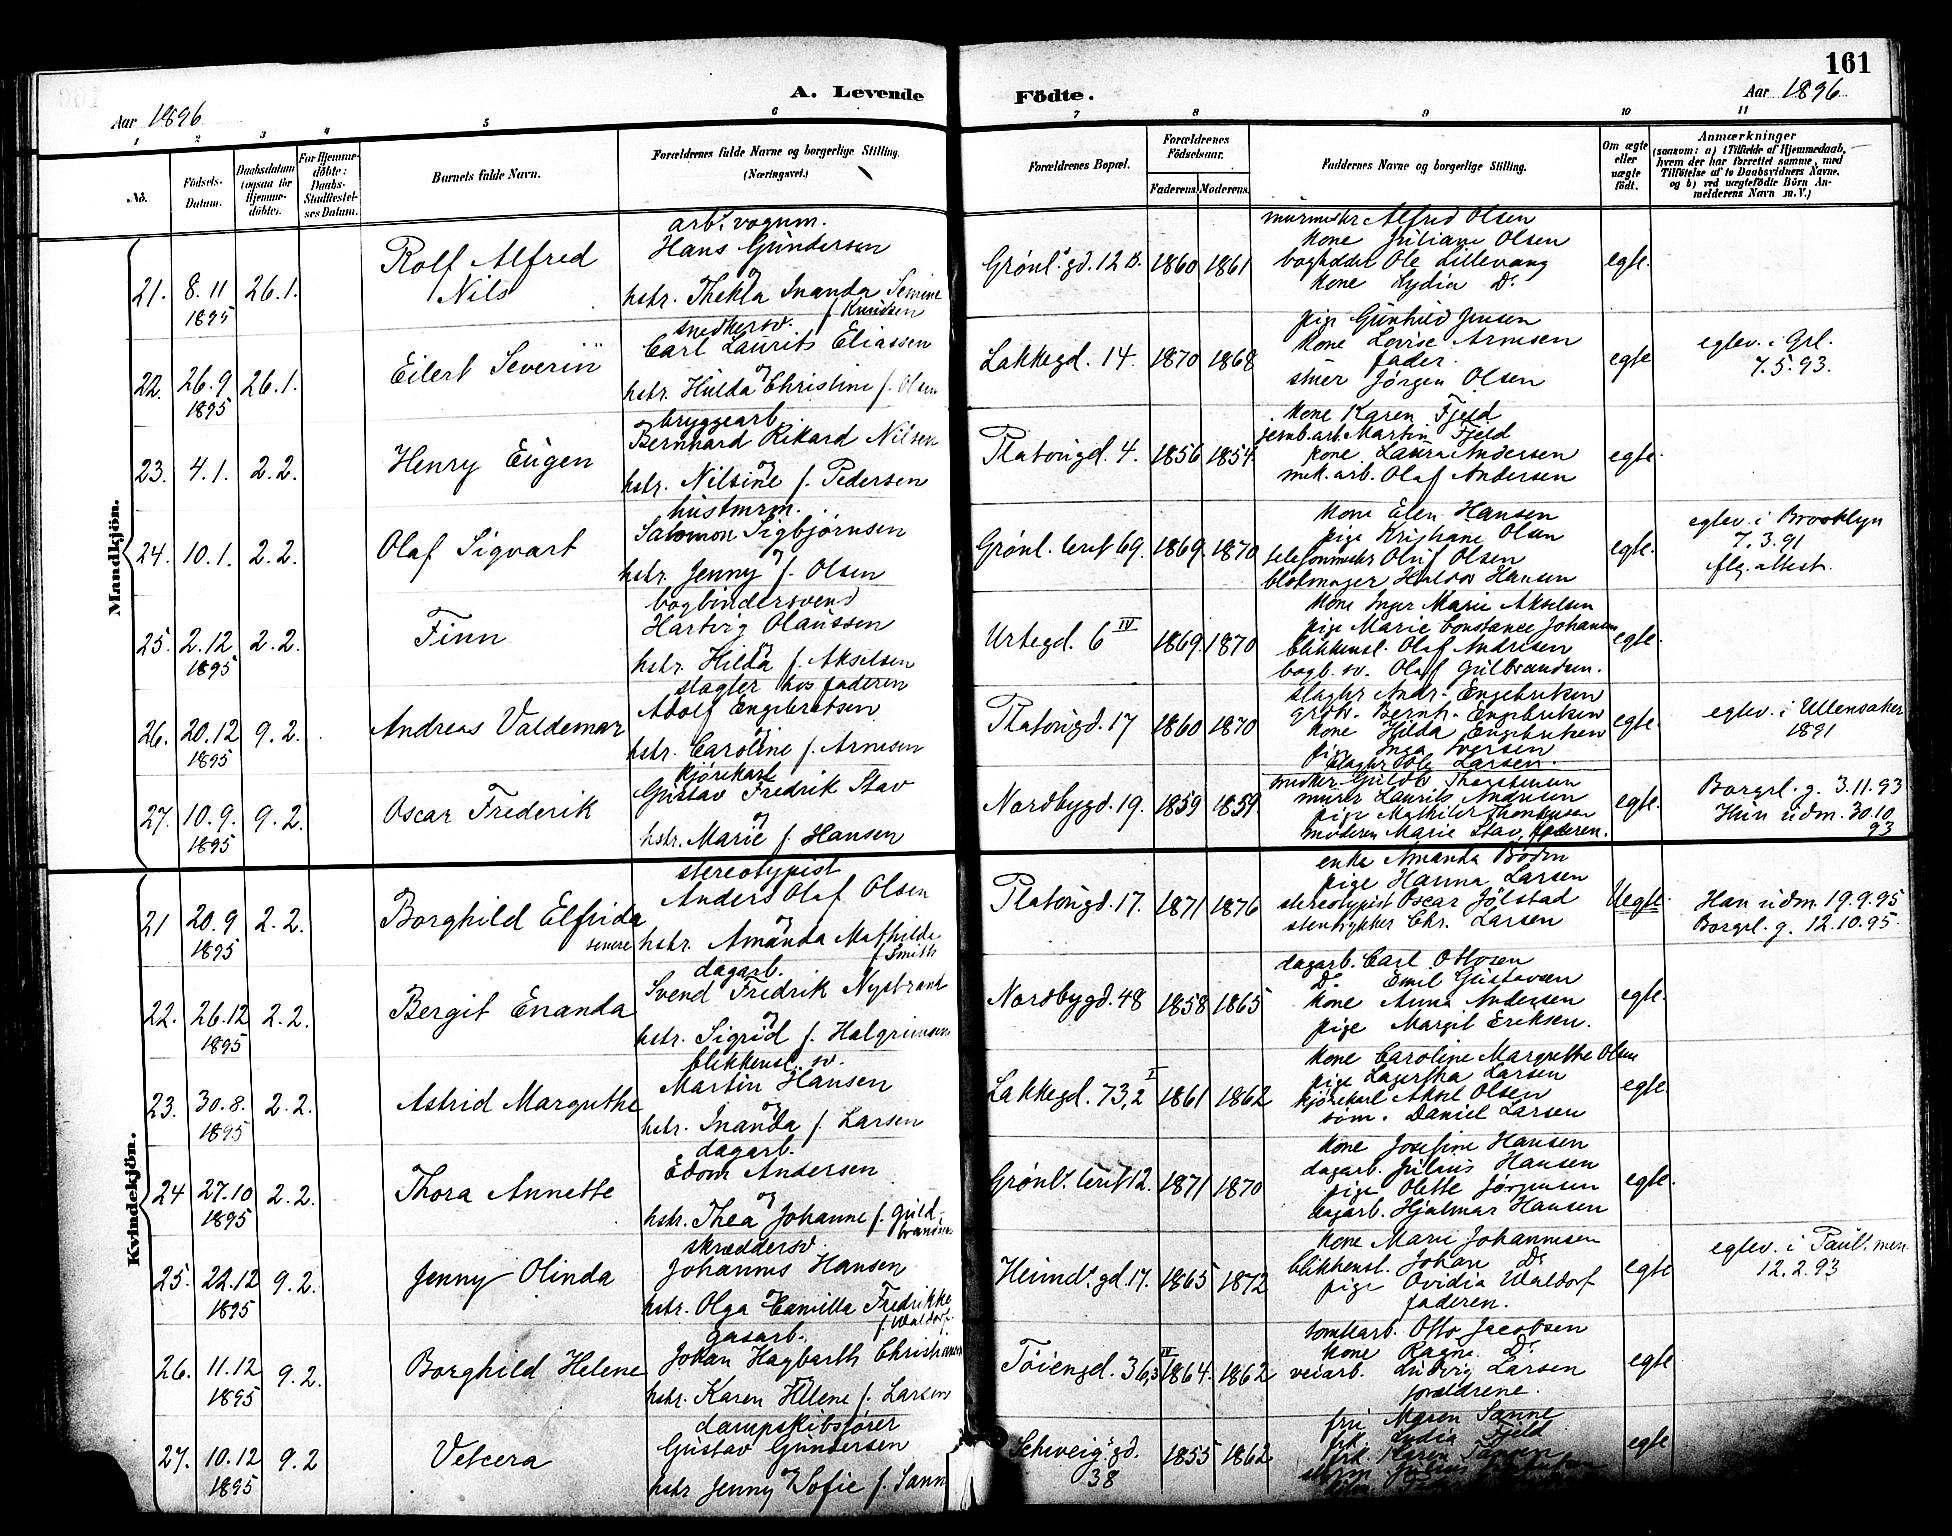 161
A. Levende Födte.
Aar 1896
Aar 1896
1 2 3 4 5 6 7 8 9 10 11
No.
Födsels-Datum.
Daabsdatum (ogsaa for Hjemme-döbte).
For Hjemme-döbte: Daabs-Stadfæstel-ses Datum.
Barnets fulde Navn.
Forældrenes fulde Navne og borgerlige Stilling. (Næringsvei.)
Forældrenes Bopæl.
Forældrenes Födselsaar.
Faderens. Moderens.
Faddernes Navne og borgerlige Stilling.
Om ægte eller uægte födt.
Anmærkninger (saasom: a) i Tilfælde af Hjemmedaab, hvem der har forrettet samme, med Tilföielse af to Daabsvidners Navne, og b) ved uægtefödte Börn Anmelderens Navn m. V.)
Mandkjön.
21. 8.11 1895 26.1.
Rolf Alfred Nils
arb. vognm.
Hans Gundersen
og
hstr. Thekla Inanda Semine f. Knudsen
Grønl. gd. 12 B. 1860 1861
murmester Alfred Olsen
kone Juliane Olsen
bogholder Ole Lillevang
kone Lydia Do
egte.
22. 26.9 1895 26.1.
Eilert Severin
snedkersv.
Carl Laurits Eliassen
og
hstr. Hulda Christine f. Olsen
Lakkegd. 14. 1870 1868
pige Gunhild Jensen
kone Lovise Arnesen
fader.
stuer Jørgen Olsen
egte
egtev. i Grl.
7.5.93.
23. 4.1. 2.2.
Henry Eugen
bryggearb.
Bernhard Rikard Nilsen
og
hstr. Nilsine f. Pedersen
Platougd. 4. 1856 1854.
kone Karen Fjeld
jernb.arb. Martin Fjeld
kone Laura Andersen
mek. arb. Olaf Andersen
egte.
24. 10.1. 2.2.
Olaf Sigvart
hustmrm.
Salomon Sigbjørnsen
og
hstr. Jenny f. Olsen
Grønl. leret 69. 1869. 1870
kone Elen Hansen
pige Kristiane Olsen
telefonmester Oluf Olsen
blokmager Haldor Hansen
egte.
egtev. i Brooklyn
7.3.91
flg. attest.
25. 2.12 1895 2.2.
Finn
bogbindersvend
Hartvig Olaussen
og
hstr. Hilda f. Akselsen
Urtegd. 6 IV 1869. 1870
kone Inger Marie Akselsen
pige Marie Constance Johansen
blikkensl. Olaf Andresen
bogb. sv. Olaf Gulbrandsen.
egte.
26. 20.12 1895 9.2.
Andreas Valdemar
slagter hos faderen
Adolf Engebretsen
og
hstr. Caroline f. Arnesen
Platougd. 17 1860 1870
slagter Andr. Engebretsen
Bernh. Engebretsen
kone Hilda Engebretsen
pige Inga Iversen
slagter Ole Larsen.
egte.
egtev. i Ullensaker
1891
27. 10.9. 1895 9.2.
Oscar Frederik
kjørekarl
Gustav Fredrik Stav
og
hstr. Marie f. Hansen
Nordbygd. 19. 1859 1859
snedker Guldbr. Thorstensen
murer Laurits Andersen
pige Mathilde Thomassen
moderen Marie Stav, faderen.
egte.
Borgrl. g. 3.11.93
Hun udm. 30.10 93
Kvindekjön.
21 20.9 1895 2.2.
Borghild Elfrida
stereotypist
Anders Olaf Olsen
og
hstr. Amanda Mathilde f. Smith
Platougd. 17. 1871 1876
enke Amanda Bodin
pige Hanna Larsen
stereotypist Oscar Jölstad
stentrykker Chr. Larsen
Uegte.
Han udm. 19.9.95
Borgrl. g. 12.10.95.
22. 26.12 1895 2.2.
Bergit Enanda
dagarb.
Svend Fredrik Nystrand
og
hstr. Sigrid f. Halgrimsen
Nordbygd. 48 1858 1865
dagarb. Carl Ottosen
Do Emil Gustavsen
kone Anna Andersen
pige Margit Eriksen.
egte.
23. 30.8. 1895 2.2.
Astrid Margrethe
blikkensl. sv.
Martin Hansen
og
hstr. Inanda f. Larsen
Lakkegd. 73,2 I 1861 1862
kone Caroline Margrethe Olsen
pige Lagertha Larsen
kjørekarl Aksel Olsen
søm. Daniel Larsen
egte.
24 27.10 1895 2.2.
Thora Annette
dagarb.
Edom Andersen
og
hstr. Thea Johanne f. Guldbrandsen
Grønl. leret 12. 1871 1870
kone Josefine Hansen
dagarb. Julius Hansen
pige Olette Jørgensen
dagarb. Hjalmar Hansen
egte.
25. 22.12 1895 9.2.
Jenny Olinda
skræddersv.
Johannes Hansen
og
hstr. Olga Camilla Fredrikke f. Waldorf.
Heimd. gd. 17. 1865 1872
kone Marie Johannesen
blikkensl. Johan Do
pige Ovidia Waldorf
faderen.
egte
egtev. i Paul. men.
12.2.93
26. 11.12 1895 9.2.
Borghild Helene
gasarb.
Johan Hagbarth Christiansen
og
hstr. Karen Helene f. Larsen
Töiengd. 36,3 IV 1864. 1862
tomtearb. Otto Jacobsen
kone Ragne Do
veiarb. Ludvig Larsen
forældrene.
egte
27. 10.12 1895 9.2
Vetcera
dampskibsfører
Gustav Gundersen
og
hstr Jenny Sofie f. Sanne
Schweig. gd. 38 1855 1862
fru Maren Sanne
frk. Lydia Fjeld
frk. Karen
egte